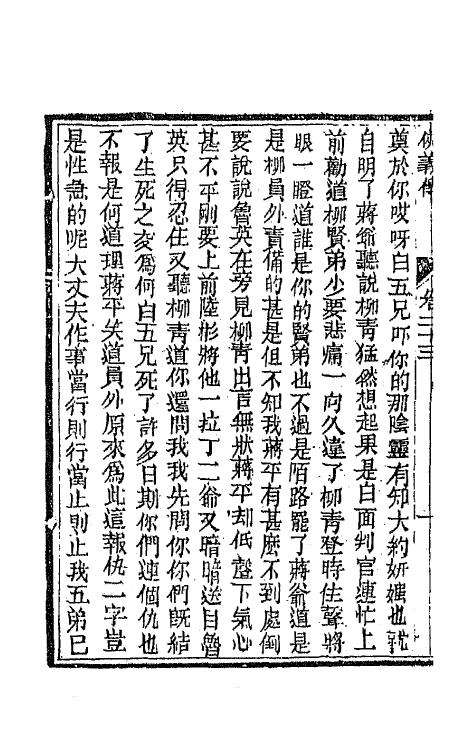 俠義傳　卷二十三
奠於你哎呀白五兄吓你的那陰靈有知大約妍媸也就
自明了蔣爺聽說柳青猛然想起果是白面判官連忙上
前勸道柳賢弟少要悲痛一向久違了柳青登時住聲將
眼一瞪道誰是你的賢弟也不過是陌路罷了蔣爺道是
是柳員外責備的甚是但不知我蔣平有甚麼不到處倒
要說說魯英在旁見柳青出言無狀蔣平却低聲下氣心
甚不平剛要上前陸彬將他一拉丁二爺又暗暗送目魯
英只得忍住又聽柳青道你還問我我先問你你們旣結
了生死之交爲何白五兄死了許多日期你們連個仇也
不報是何道理蔣平笑道員外原來爲此這報仇二字豈
是性急的呢大丈夫作事當行則行當止則止我五弟巳